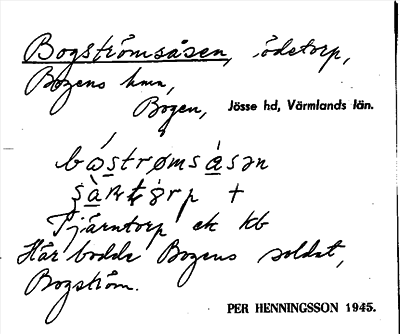 Bogströmsåsen, ödetorp,
Bogens hmn,
Bogen, Jösse hd, Värmlands län.
bo̲strømså̲sən
ʂà̲ɳʈɵrp +
Tjärntorp ek kb
Här bodde Bogens soldat,
Bogström.
PER HENNINGSSON 1945.